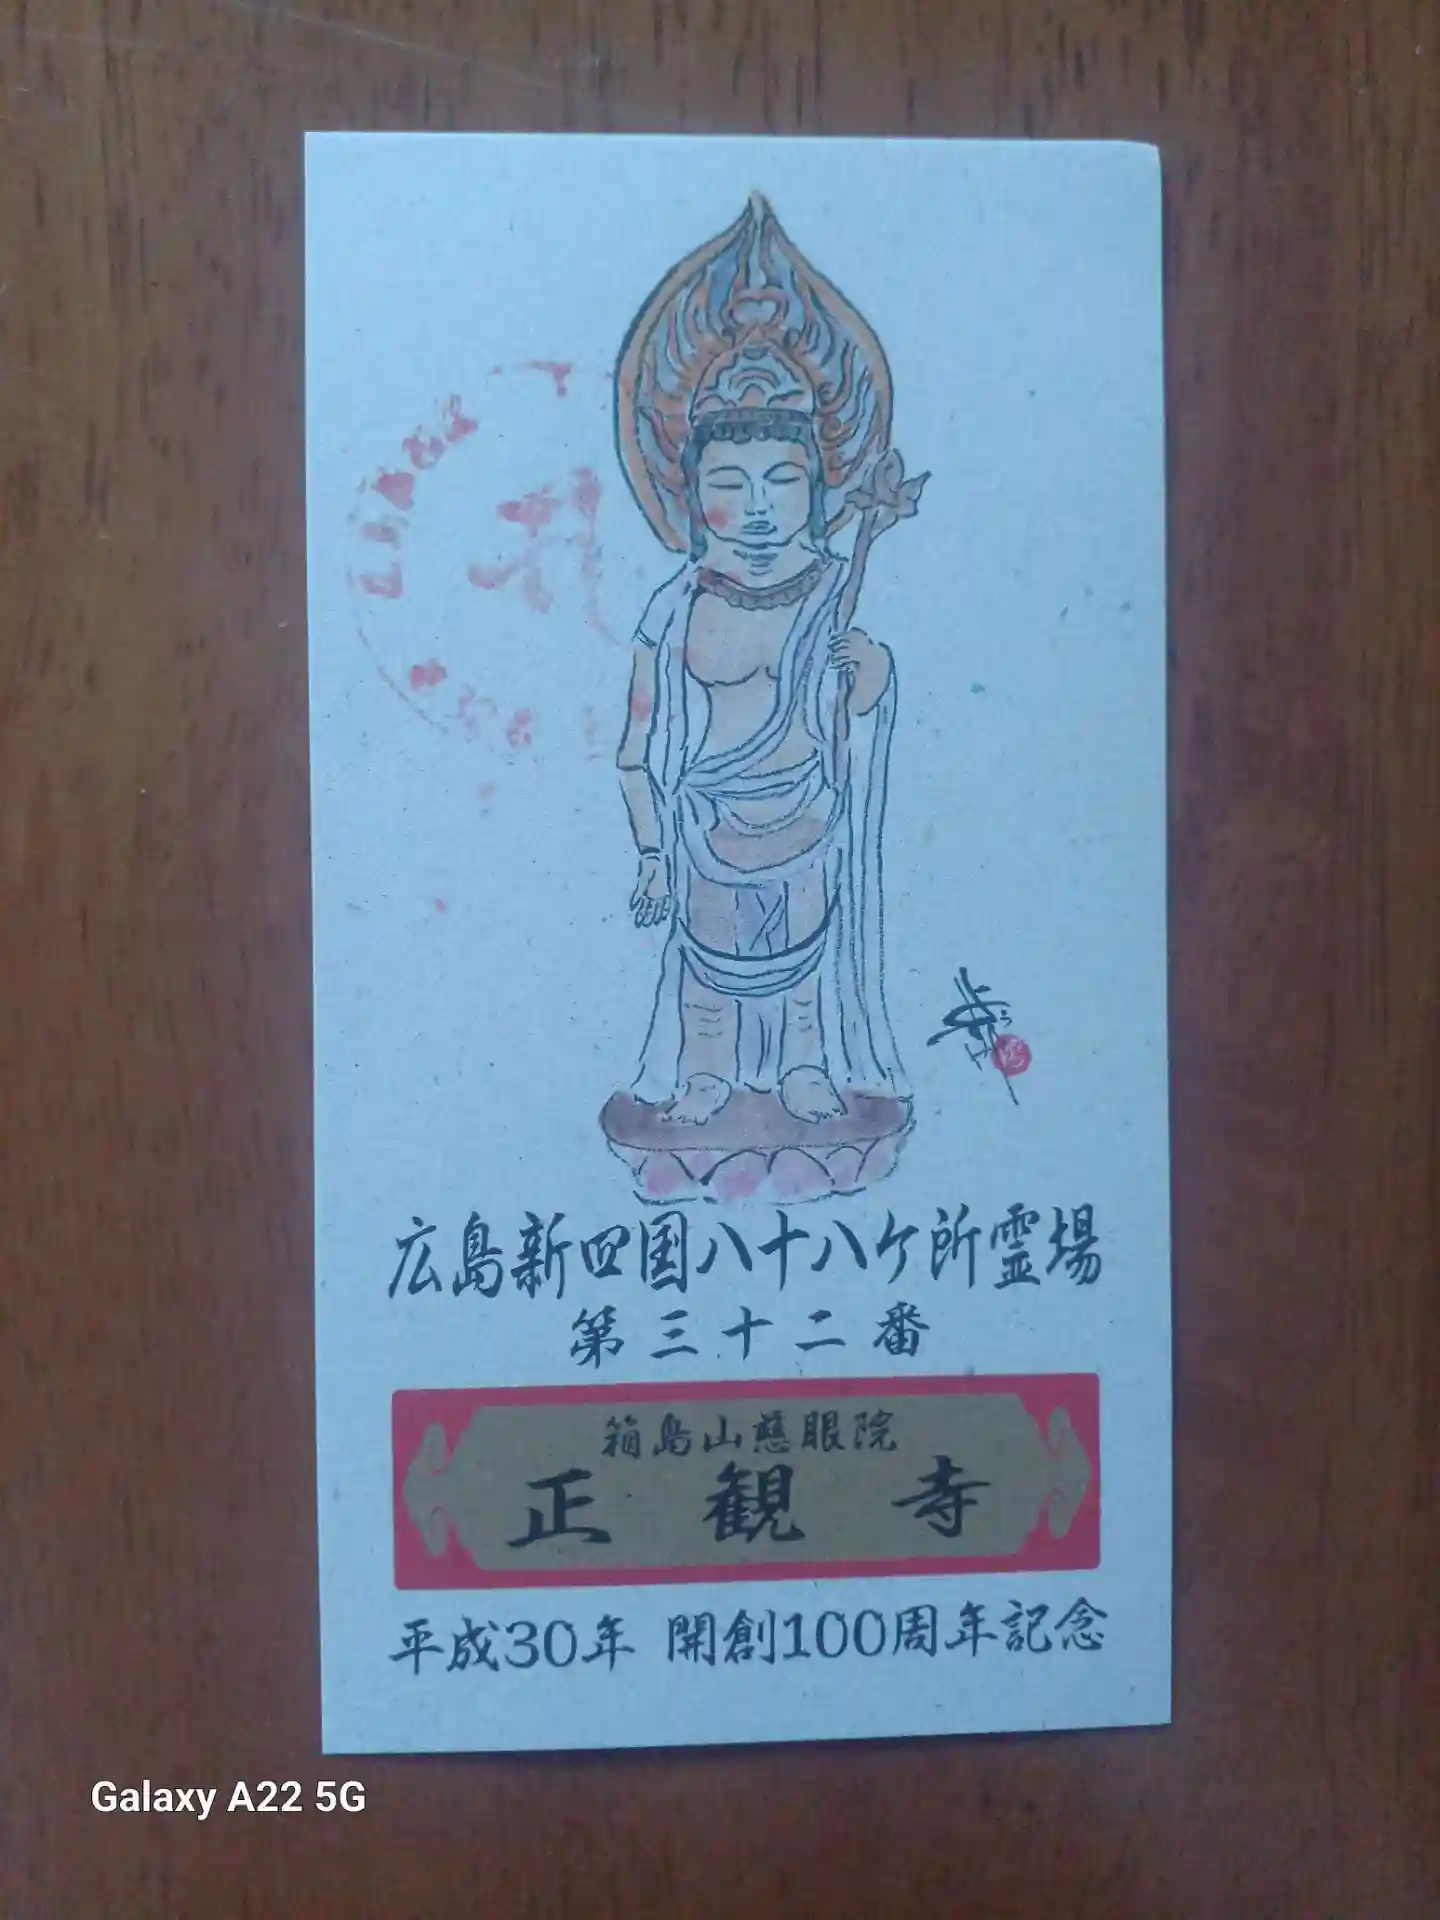 広島新四国八十八ケ所霊場
第三十二番
箱島山慈眼院
正観寺
平成30年 開創100周年記念
Galaxy A22 5G